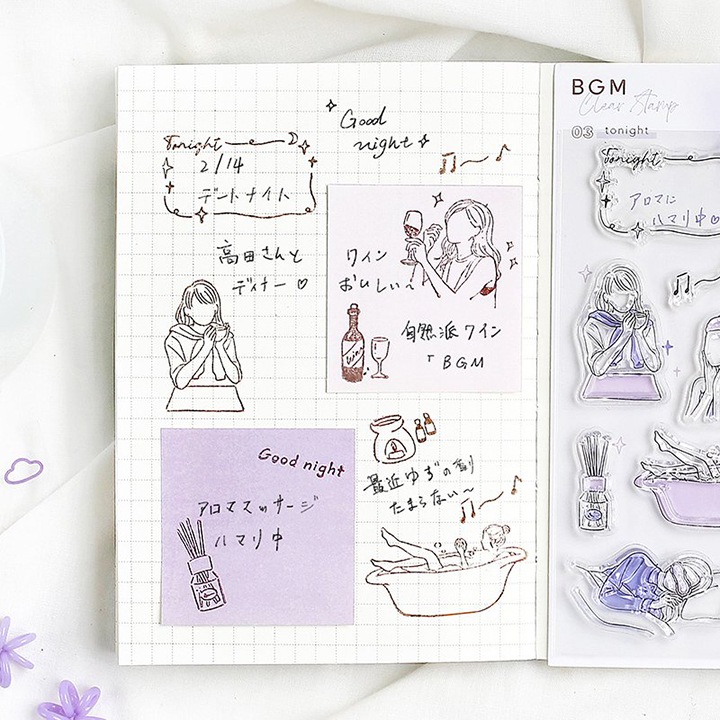 Good
night
Tonight
2/14
デートナイト
高田さんと
ディナー♡
ワイン
おいしい〜
Wine
自然派ワイン
「BGM
Good night
アロママッサージ
ハマり中
最近ゆずの
たまらない〜
BGM
Clear Stamp
03 tonight
Tonight
アロマに
ハマり中♡